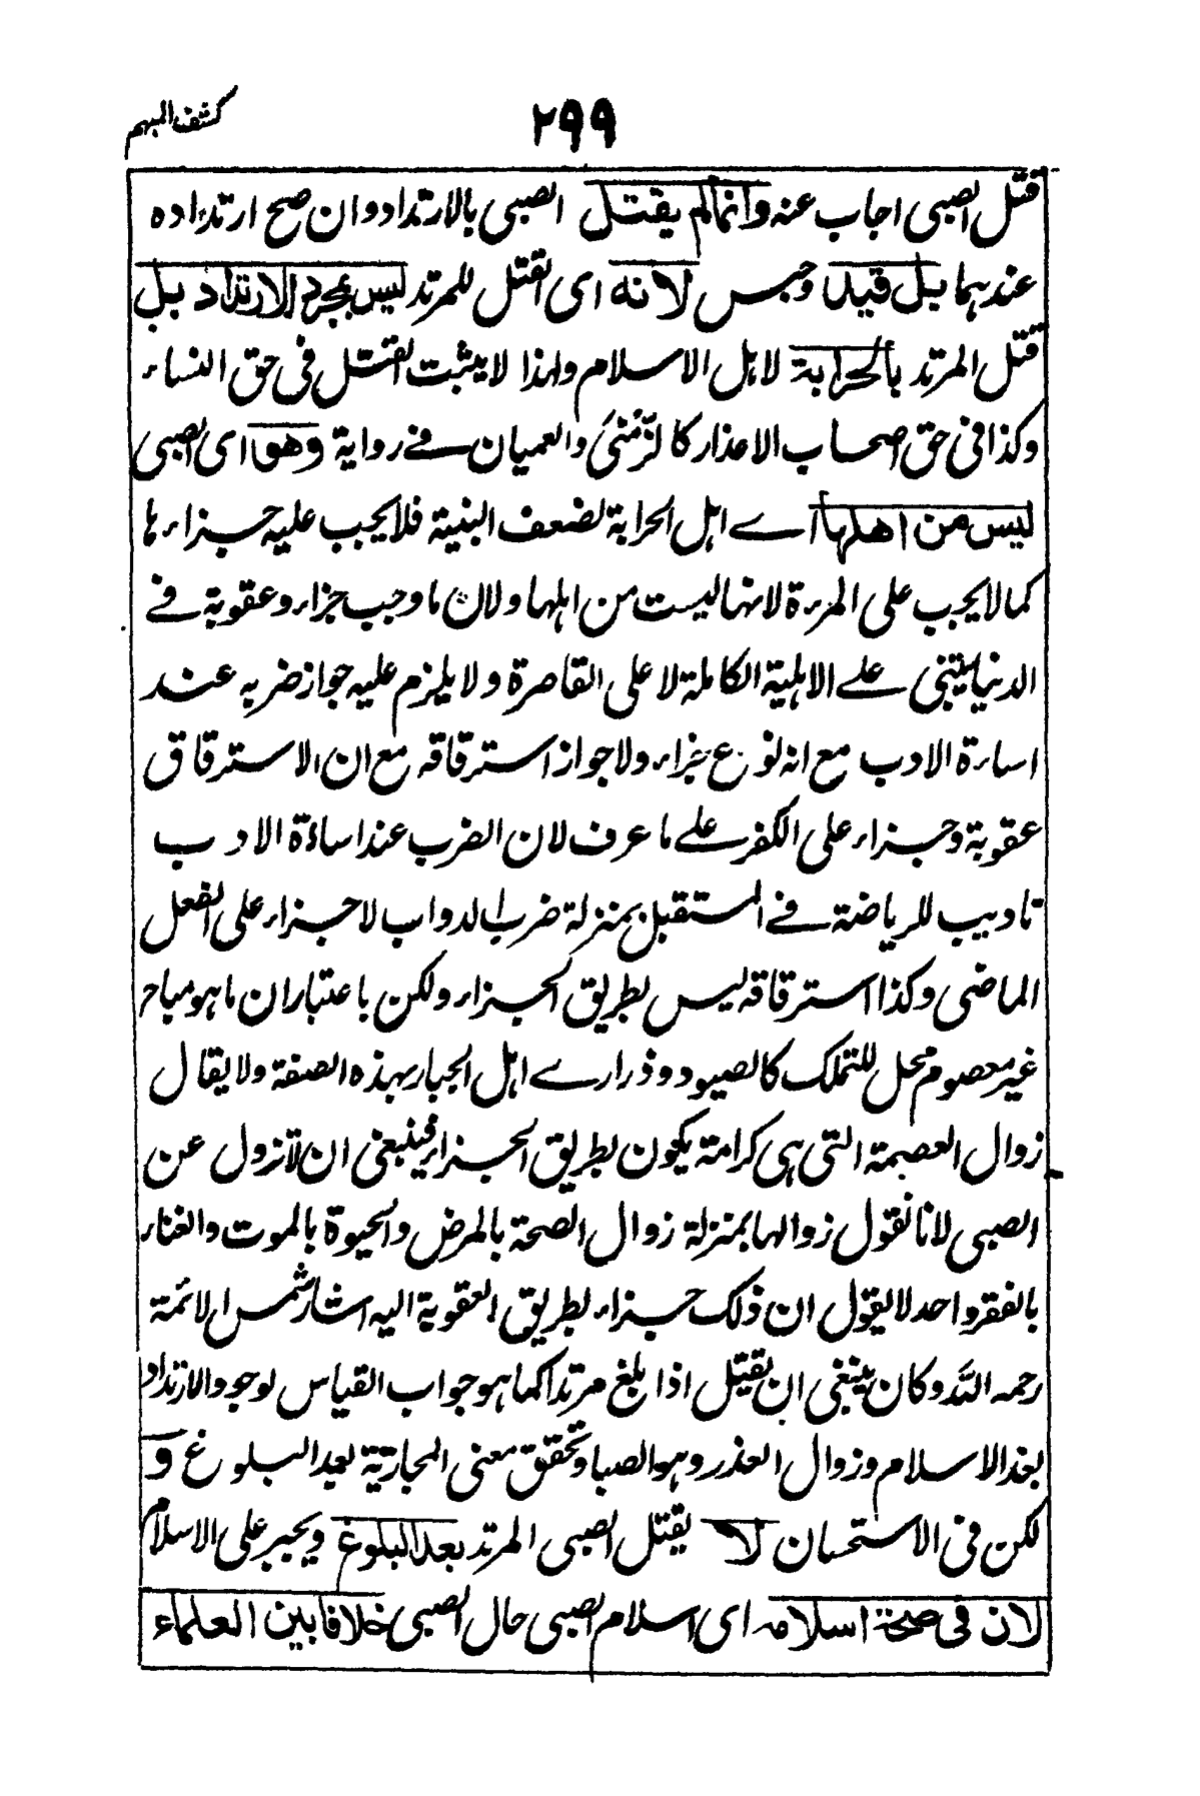 كشف المبهم
٢٩٩
قتل الصبي اجاب عنه وانما لم يقتل الصبي بالارتداد وان صح ارتداده
عندهما بل قيد وحبس لانه اى القتل للمرتد ليس بمجرد الارتداد بل
قتل المرتد بالحرابة لاهل الاسلام ولهذا لا يثبت القتل فى حق النساء
وكذا فى حق اصحاب الاعذار كالزَّمْنىٰ والعميان فے رواية وهو اى الصبي
ليس من اهلها اے اهل الحرابة لضعف البنية فلا يجب عليه جزاءها
كما لا يجب على المرءة لانها ليست من اهلها ولان ما وجب جزاء وعقوبة فے
الدنيا يبتنى علے الاهلية الكاملة لا على القاصرة ولا يلزم عليه جواز ضربه عند
اساءة الادب مع انه نوع جزاء ولا جواز استرقاقه مع ان الاسترقاق
عقوبة وجزاء على الكفر علے ما عرف لان الضرب عند اساءة الادب
تاديب للرياضة فے المستقبل بمنزلة ضرب الدواب لا جزاء على الفعل
الماضى وكذا استرقاقه ليس بطريق الجزاء ولكن باعتبار ان ما هو مباح
غير معصوم محل للتملك كالصيود وذرارے اهل الحرب بهذه الصفة ولا يقال
زوال العصمة التى هى كرامة يكون بطريق الجزاء فينبغى ان لا تزول عن
الصبى لانا نقول زوالها بمنزلة زوال الصحة بالمرض والحيوة بالموت والغناء
بالفقر واحد لا يقول ان ذلك جزاء بطريق العقوبة اليه اشار شمس الائمة
رحمه الله وكان ينبغى ان يقتل اذا بلغ مرتدا كما هو جواب القياس لوجود الارتداد
بعد الاسلام وزوال العذر وهو الصبا وتحقق معنى المحاربة بعد البلوغ و
لكن فى الاستحسان لا يقتل الصبى المرتد بعد البلوغ ويجبر على الاسلام
لان فى صحة اسلامه اى اسلام الصبى حال الصبى خلافا بين العلماء